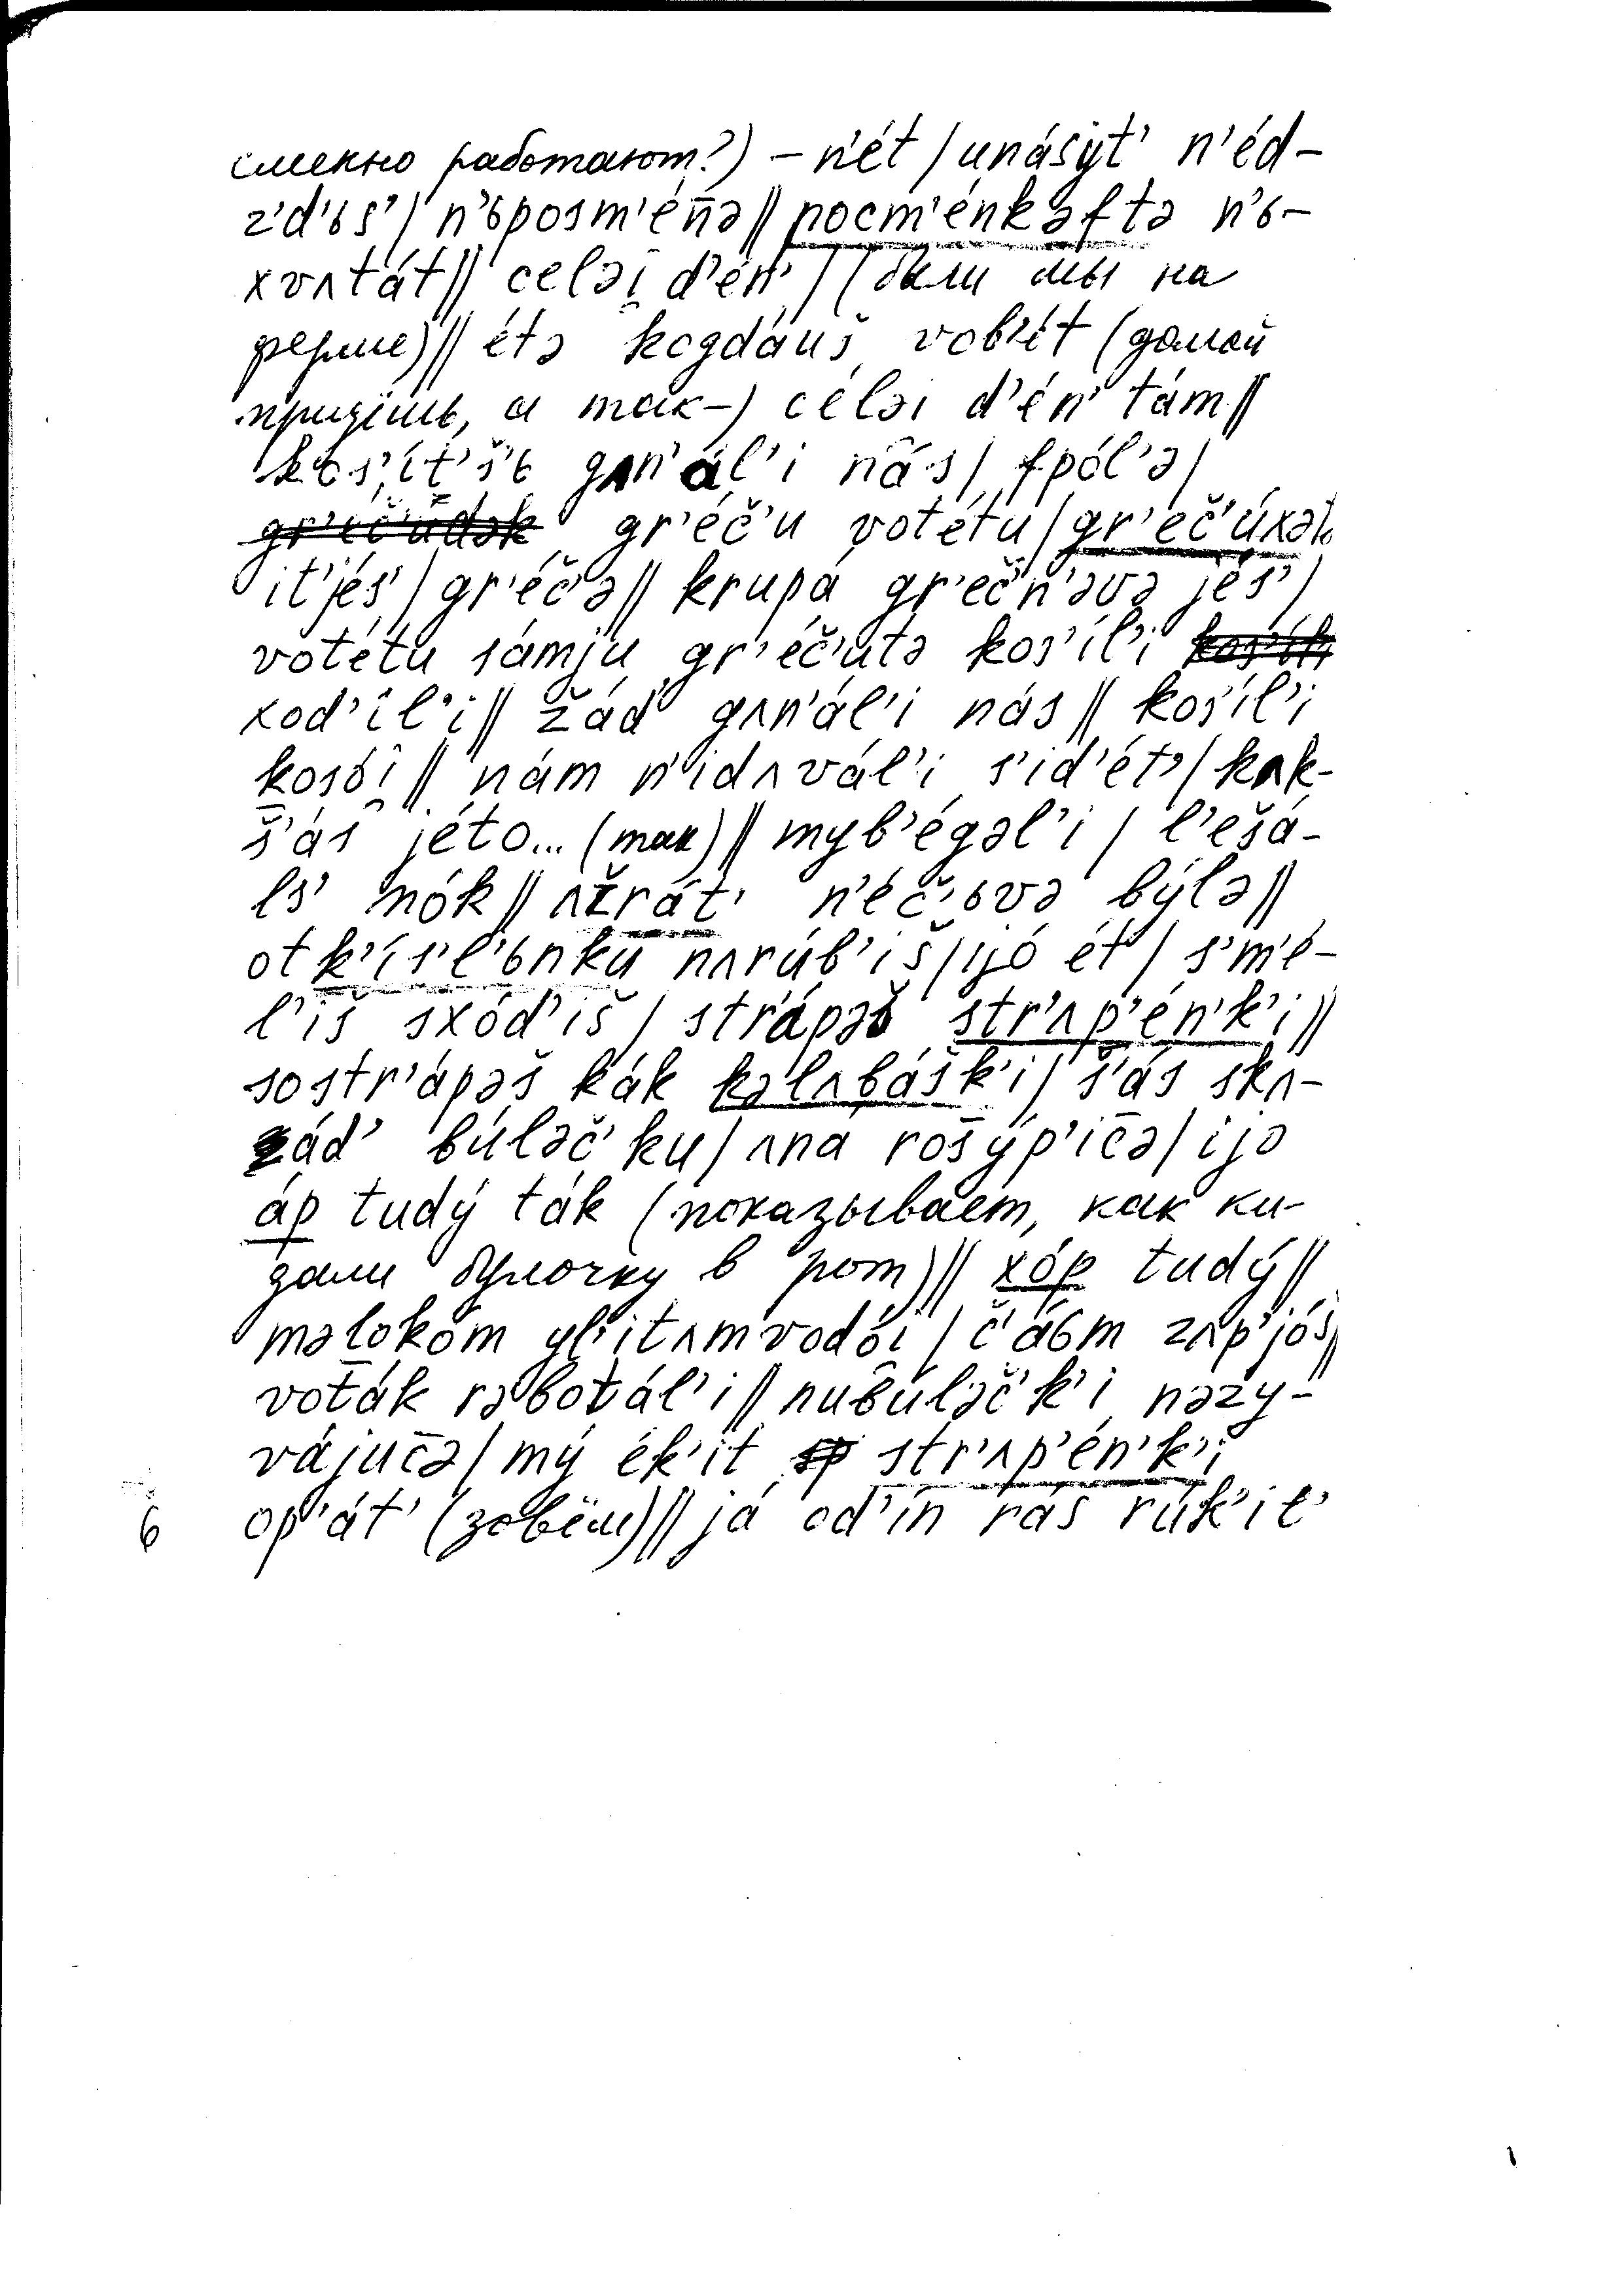 сменно работают?) – n'ét / unásyt' n'éd-
z'd'ьs' / n'ьposm'én̄ə // pocm'énkəftə n'ь-
xvʌtát // celəi̯ d'én' / (были мы на
ферме) // étə kogdáuš vob'ét (домой
придёшь, а так –) céləi d'én' tám //
kos'ít's'ь gʌn'ál'i nás / fpól'ə /
gr'éč'u votétu / gr'eč'úxəl
it'jés' / gr'éč'ə // krupá gr'eč'n'əvə jés' /
votétu sámju gr'éč'utə kos'íl'i
xod'íl'i // žád' gʌn'ál'i nás // kos'íl'i
kosói̯ // nám n'idʌvál'i s'id'ét' / kʌk-
š'ás jéto... (так) // myb'égəl'i / l'ešá-
ls' mók // ʌžrát' n'éč'ьvə býlə //
otk'ís'l'ьnku nʌrúb'iš / ijó ét / s'm'é-
l'iš sxód'iš / str'ápəš str'ʌp'én'k'i //
sostr'ápəš kák kəlʌbášk'i / š'ás skʌ-
zád' búləč'ku / ʌna rošýp'ic̄ə / ijo
áp tudý ták (показывает, как ки-
дали булочку в рот) // xóp tudý //
məlokóm yl'itʌmvodói̯ / č'áьm zʌp'jóš //
voták rəbotál'i // nubúləč'k'i nəzy-
vájuc̄ə / mý ék'it str'ʌp'én'k'i
6 op'át' (зовём) // já od'ín rás rúk'it'